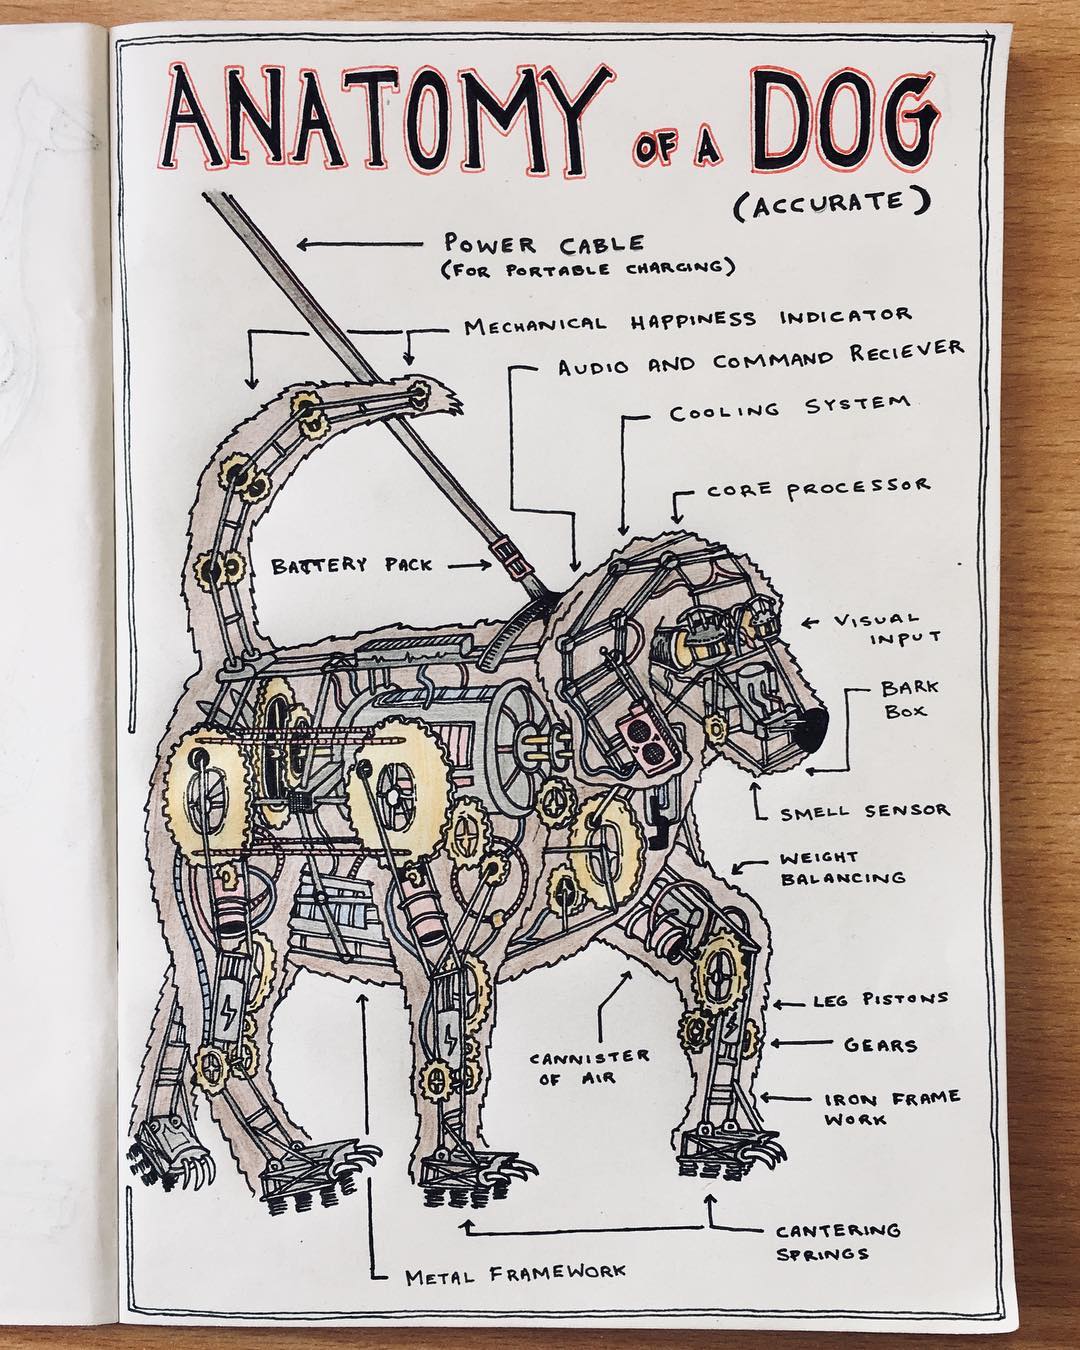 ANATOMY OF A DOG
(ACCURATE)
POWER CABLE
(FOR PORTABLE CHARGING)
MECHANICAL HAPPINESS INDICATOR
AUDIO AND COMMAND RECIEVER
COOLING SYSTEM
CORE PROCESSOR
BATTERY PACK
VISUAL
INPUT
BARK
BOX
SMELL SENSOR
WEIGHT
BALANCING
LEG PISTONS
CANNISTER
OF AIR
GEARS
IRON FRAME
WORK
CANTERING
SPRINGS
METAL FRAMEWORK